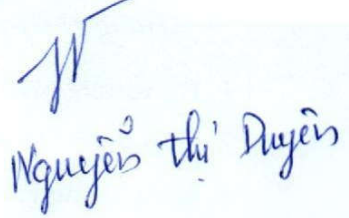 Nguyễn Thị Duyên